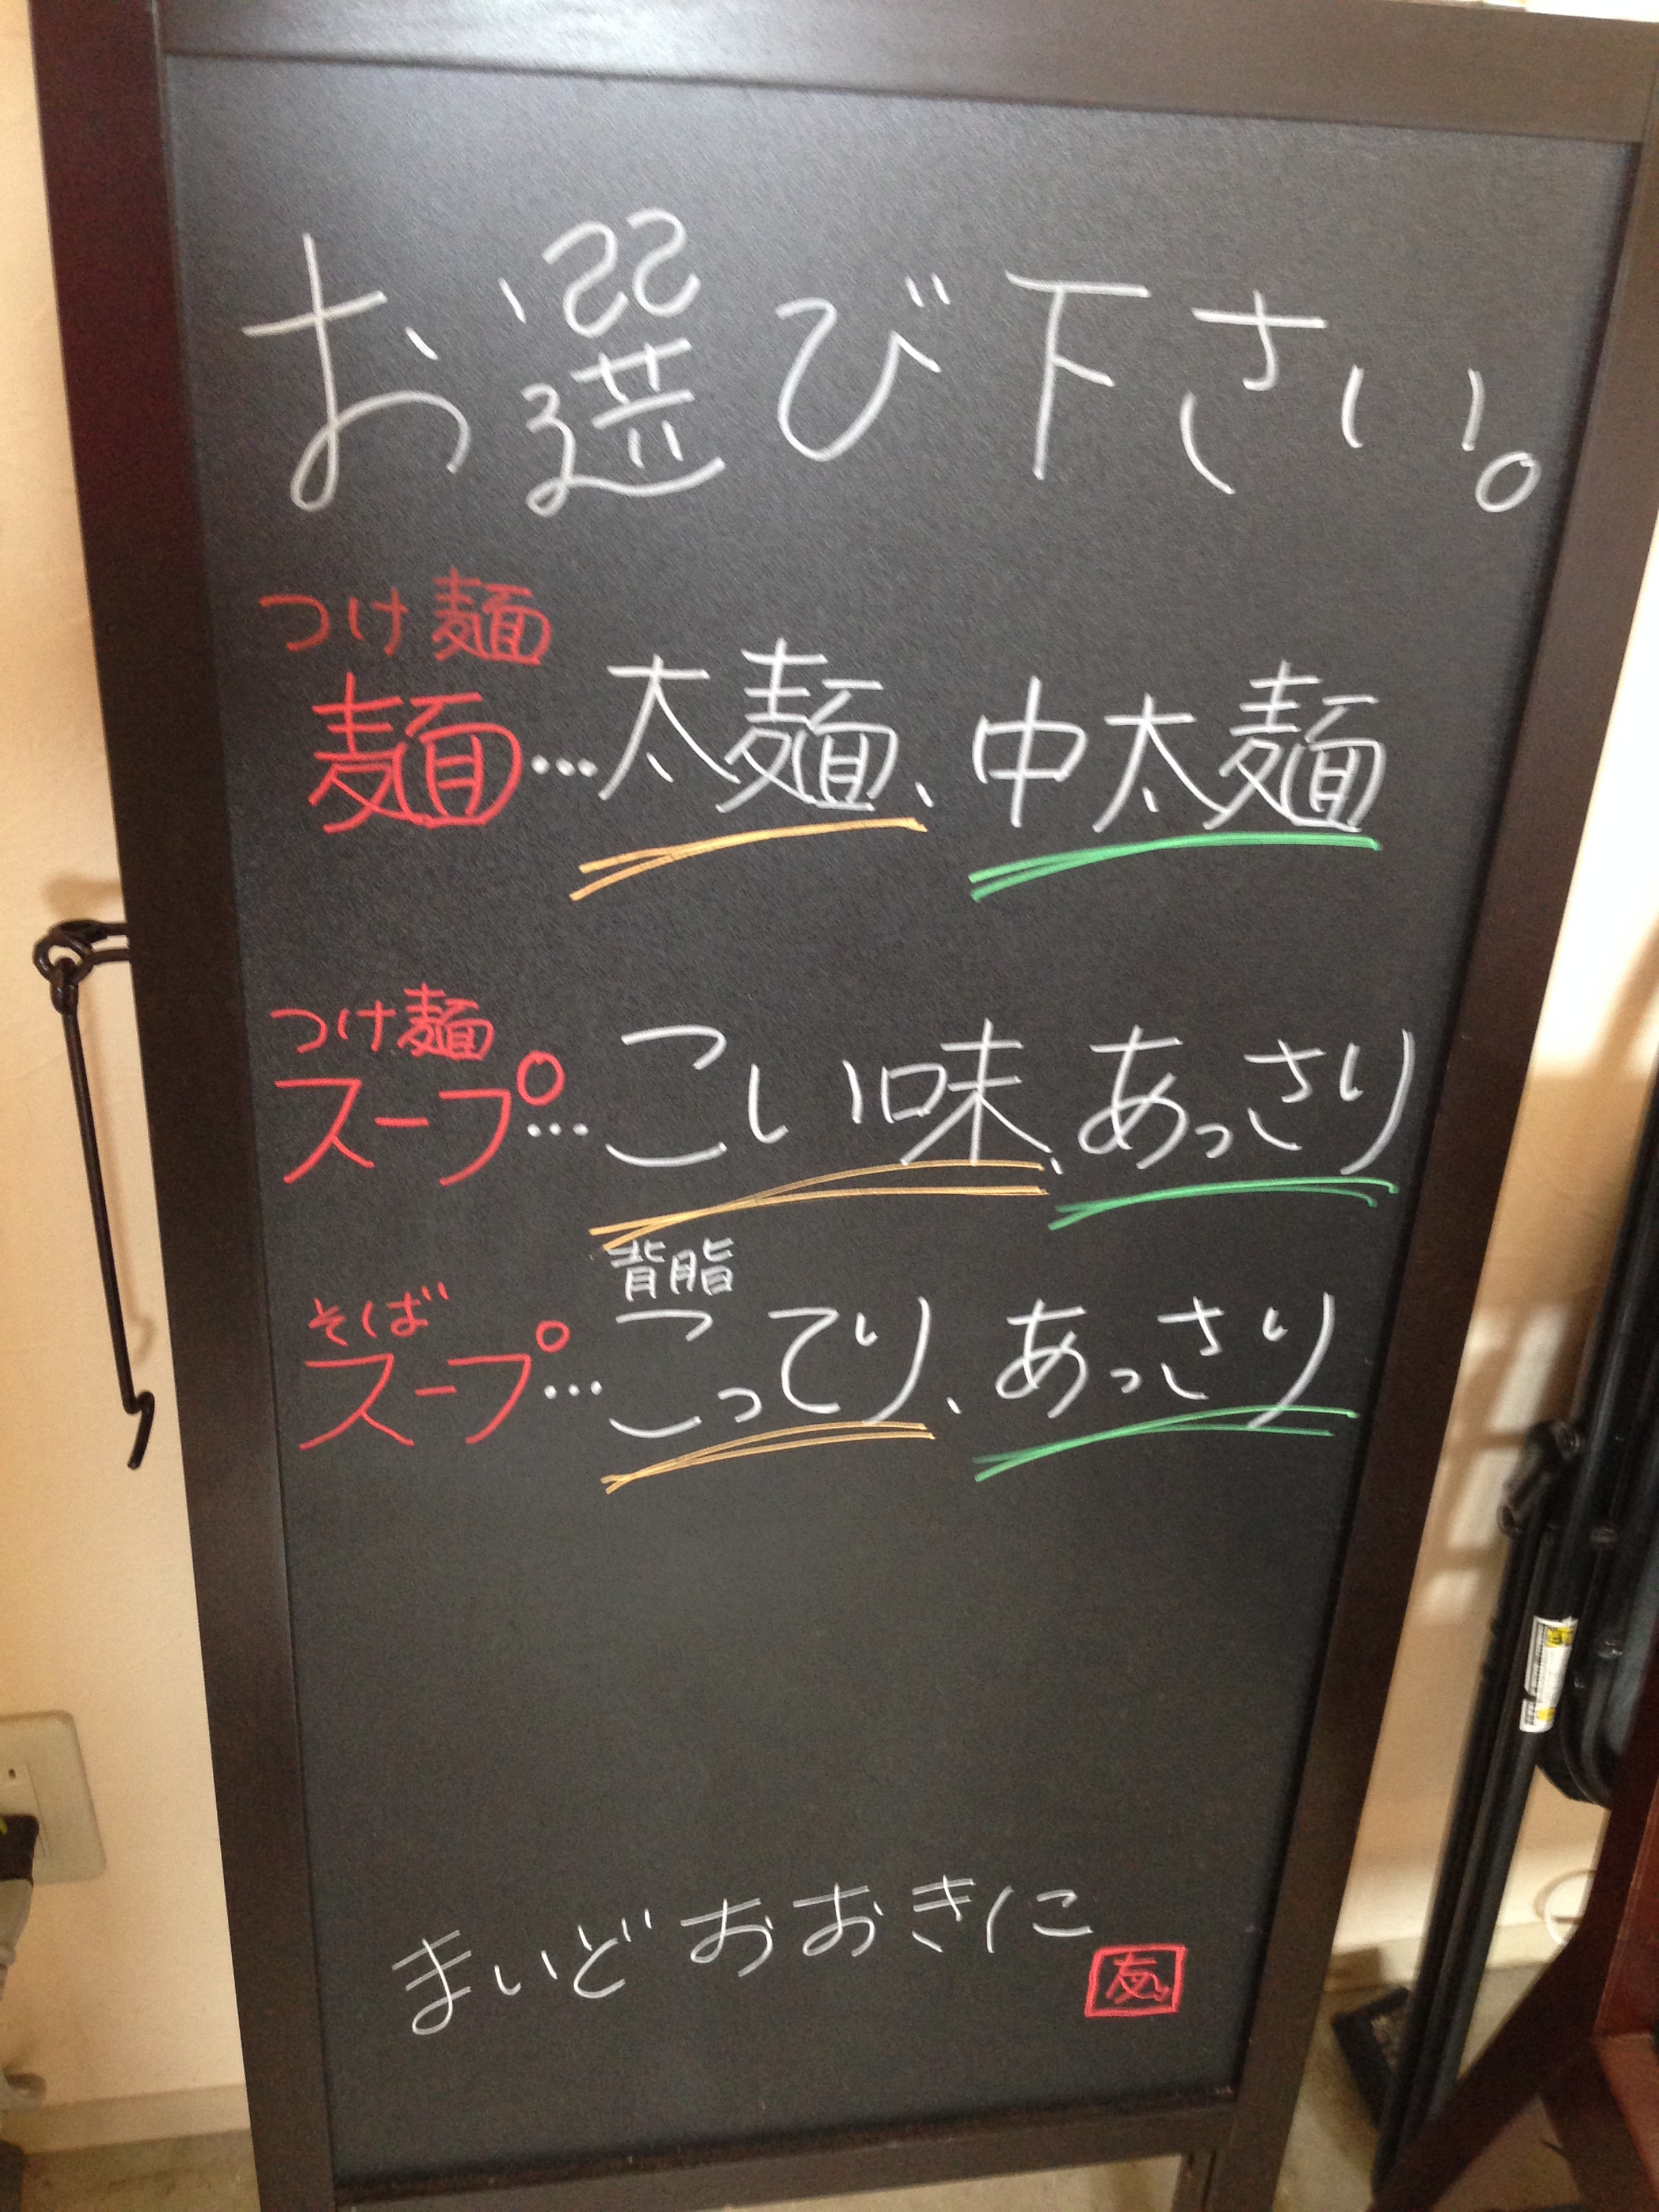 お選び下さい。
つけ麺
麺…太麺、中太麺
つけ麺
スープ…こい味、あっさり
背脂
そば
スープ…こってり、あっさり
まいどおおきに
友